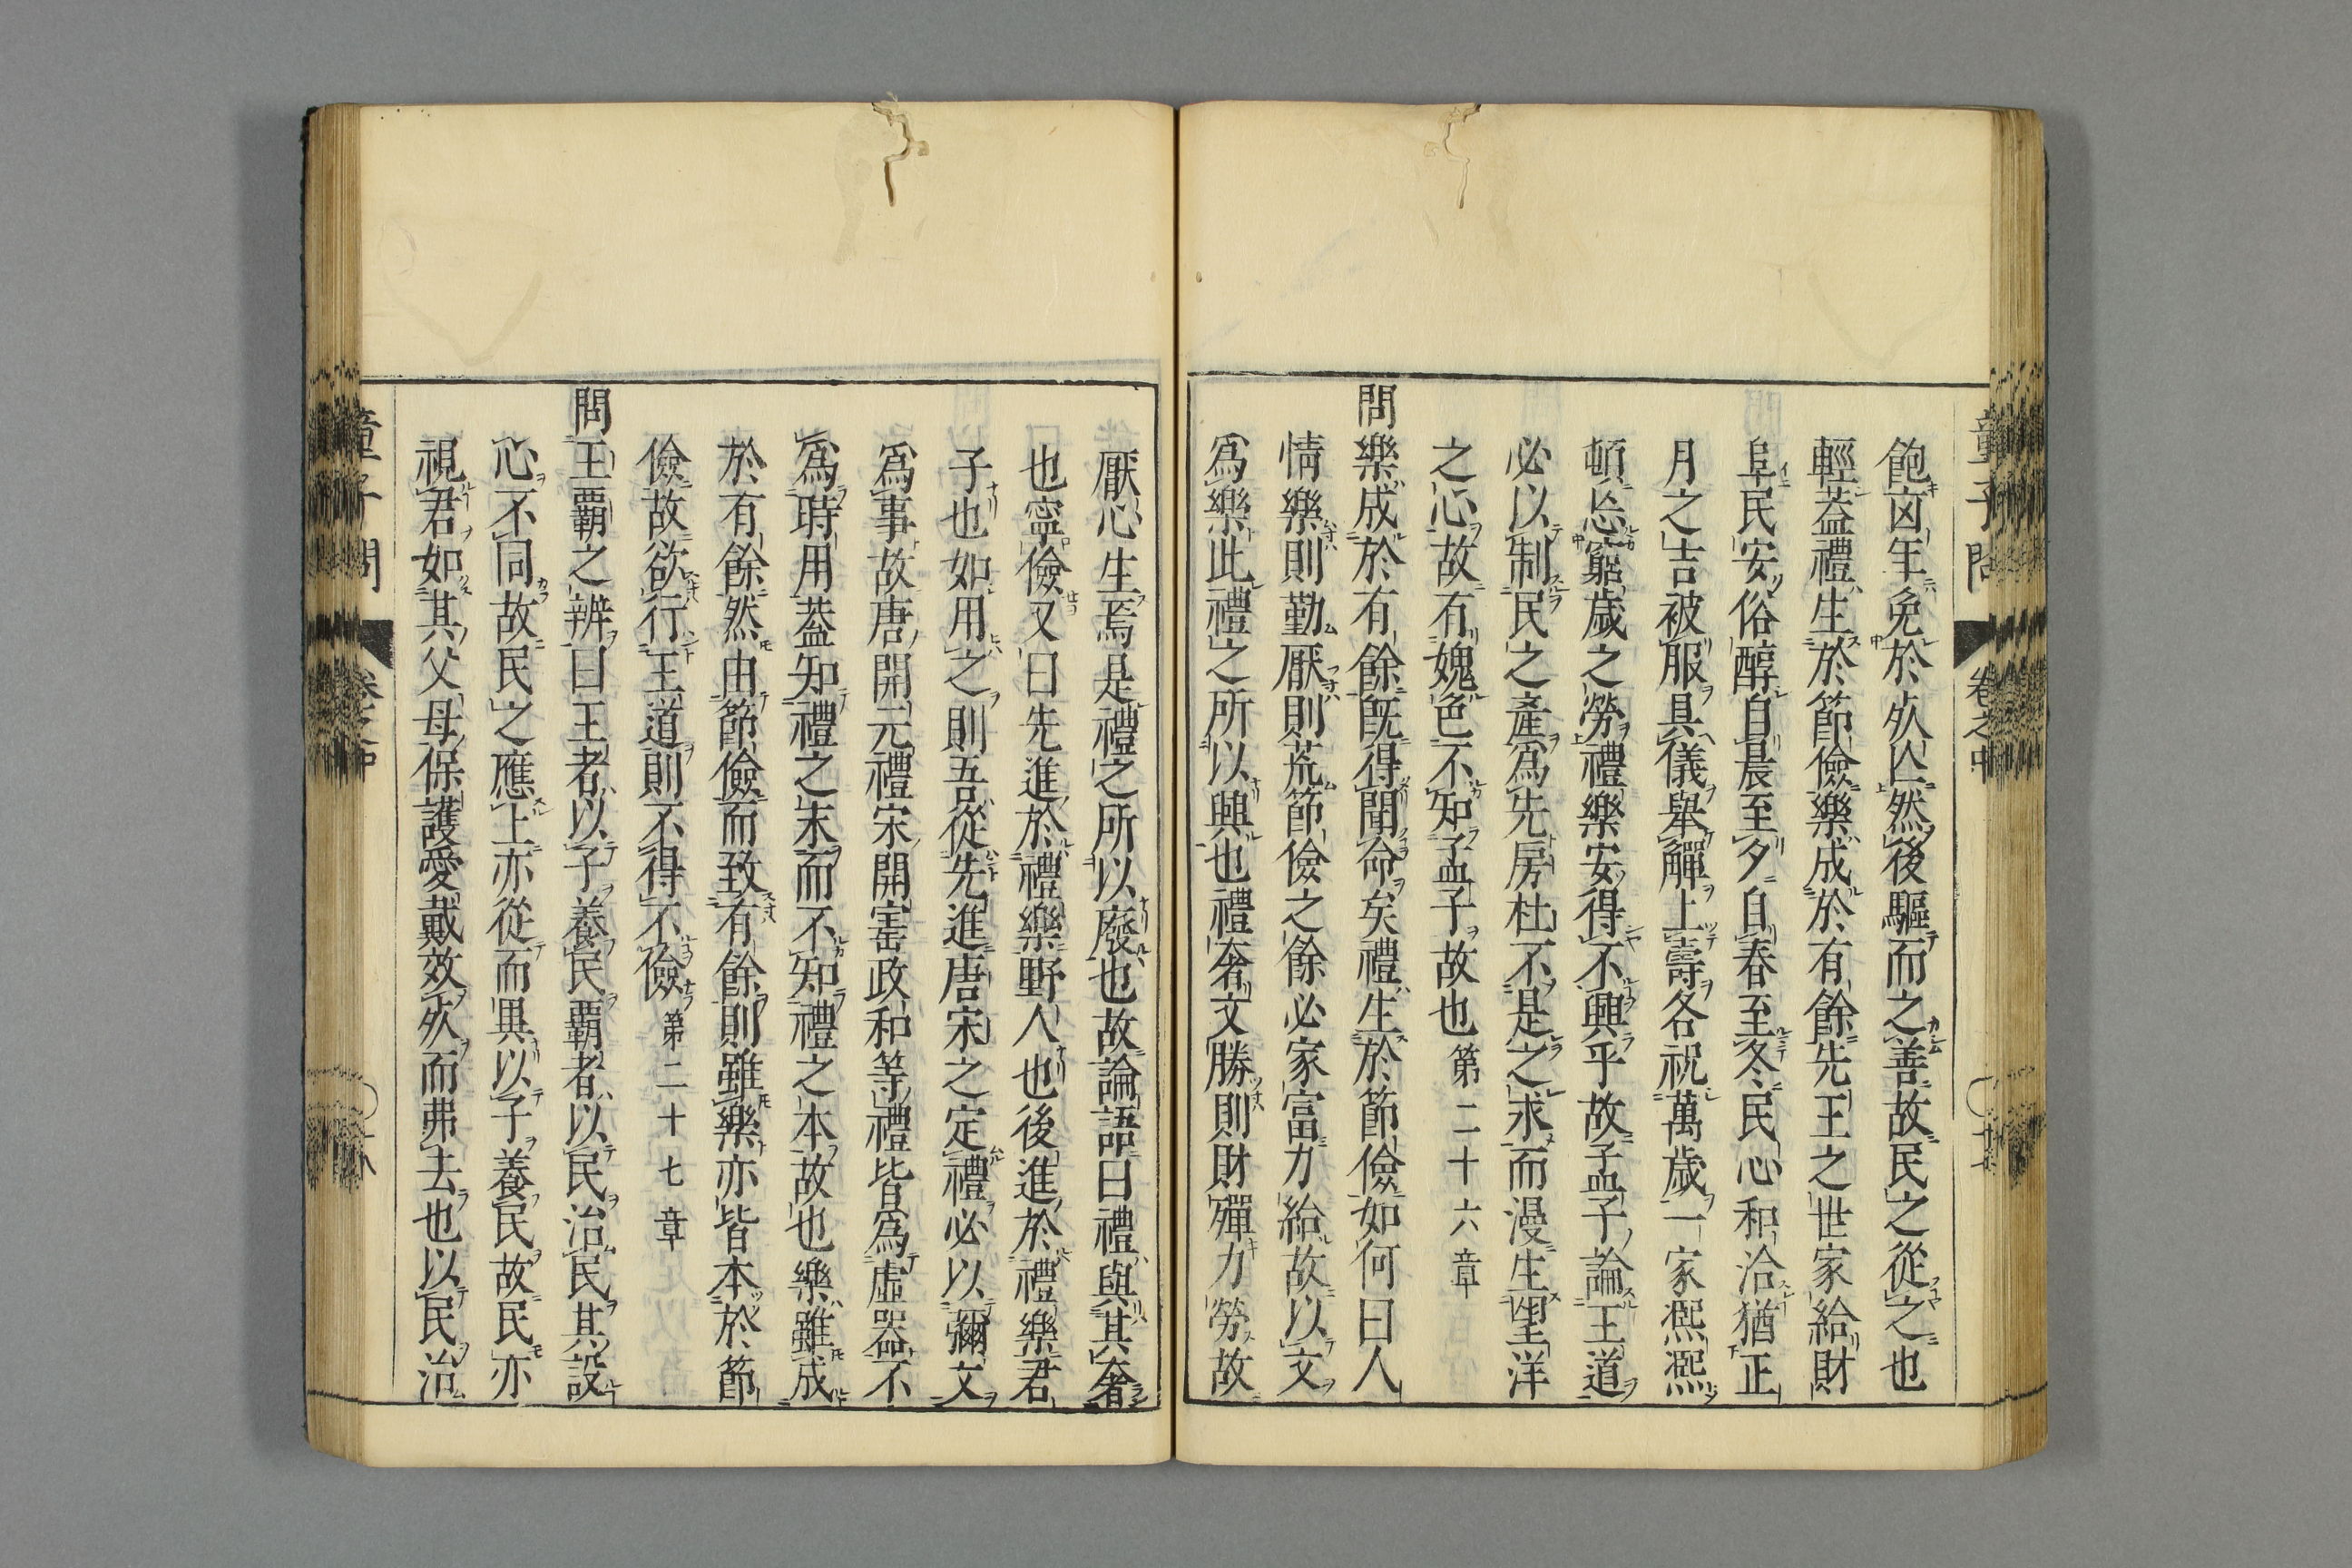 童子問 卷之中
飽凶年免於死亾然後驅而之善故民之從之也
輕葢禮生於節儉樂成於有餘先王之世家給財
阜民安俗醇自晨至夕自春至冬民心和洽猶正
月之吉被服具儀舉觶上壽各祝萬歲一家熙熙
頓忘窮歲之勞禮樂安得不興乎故孟子論王道
必以制民之產爲先房杜不是之求而漫生望洋
之心故有媿色不知孟子故也第二十六章
問樂成於有餘既得聞命矣禮生於節儉如何曰人
情樂則勤厭則荒節儉之餘必家富力給故以文
爲樂此禮之所以興也禮奢文勝則財殫力勞故
厭心生焉是禮之所以廢也故論語曰禮與其奢
也寧儉又曰先進於禮樂野人也後進於禮樂君
子也如用之則吾從先進唐宋之定禮必以彌文
爲事故唐開元禮宋開寚政和等禮皆爲虛器不
爲時用葢知禮之末而不知禮之本故也樂雖成
於有餘然由節儉而致有餘則雖樂亦皆本於節
儉故欲行王道則不得不儉第二十七章
問王覇之辨曰王者以子養民覇者以民治民其設
心不同故民之應上亦從而異以子養民故民亦
視君如其父母保護愛戴效死而弗去也以民治
童子問 卷之中